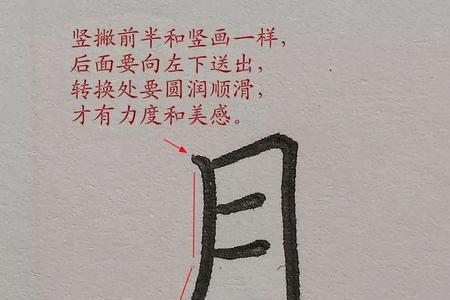 竖撇前半和竖画一样，
后面要向左下送出，
转换处要圆润顺滑，
才有力度和美感。
月